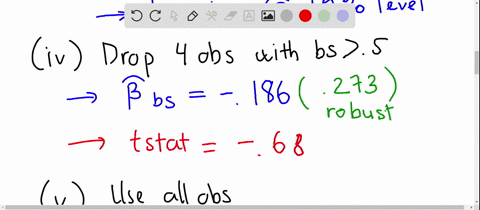 level
(iv) Drop 4 obs with bs>.5
→ β̂ bs = -.186 (.273)
robust
→ tstat = -.68
(v) Use all obs